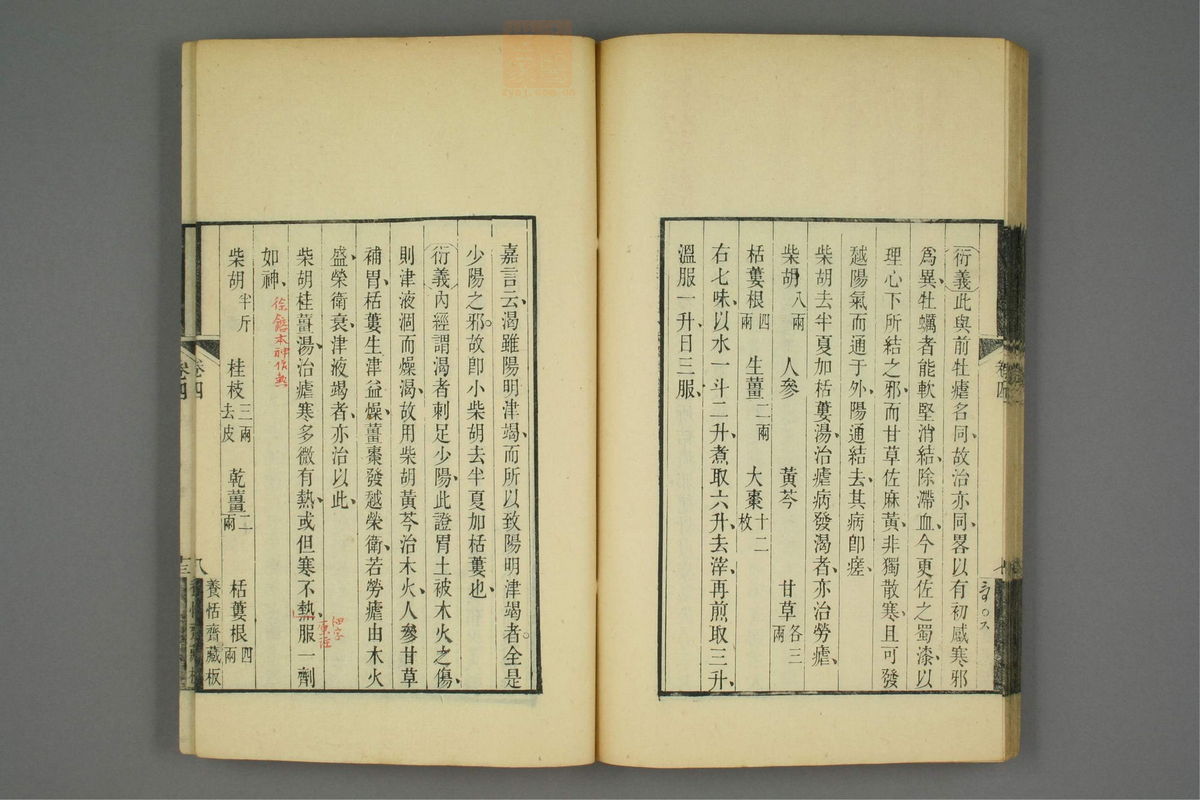 衍義此與前牡瘧名同故治亦同畧以有初感寒邪
爲異牡蠣者能軟堅消結除滯血今更佐之蜀漆以
理心下所結之邪而甘草佐麻黃非獨散寒且可發
越陽氣而通于外陽通結去其病卽瘥
柴胡去半夏加栝蔞湯治瘧病發渴者亦治勞瘧
柴胡八兩 人參 黃芩 甘草各三兩
栝蔞根四兩 生薑二兩 大棗十二枚
右七味以水一斗二升煮取六升去滓再煎取三升
溫服一升日三服
嘉言云渴雖陽明津竭而所以致陽明津竭者全是
少陽之邪故卽小柴胡去半夏加栝蔞也
衍義內經謂渴者刺足少陽此證胃土被木火之傷
則津液涸而燥渴故用柴胡黃芩治木火人參甘草
補胃栝蔞生津益燥薑棗發越榮衛若勞瘧由木火
盛榮衛衰津液竭者亦治以此
柴胡桂薑湯治瘧寒多微有熱或但寒不熱服一劑
如神
柴胡半斤 桂枝三兩去皮 乾薑二兩 栝蔞根四兩
卷四
八
養恬齋藏板